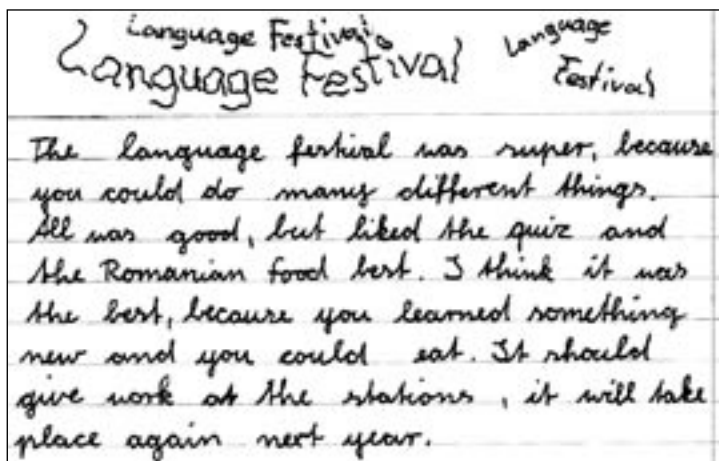 Language Festival
Language Festival
Language
Festival
The language festival was super, because
you could do many different things.
All was good, but liked the quiz and
the Romanian food best. I think it was
the best, because you learned something
new and you could eat. It should
give work at the stations, it will take
place again next year.